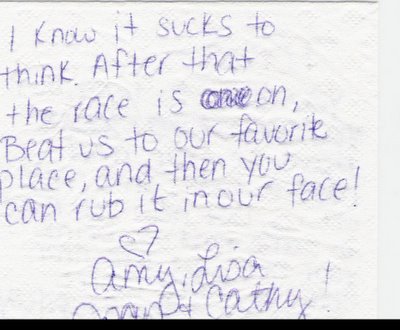 I know it sucks to
think. After that
the race is on,
Beat us to our favorite
place, and then you
can rub it in our face!
♡
Amy, Lisa
Cathy!